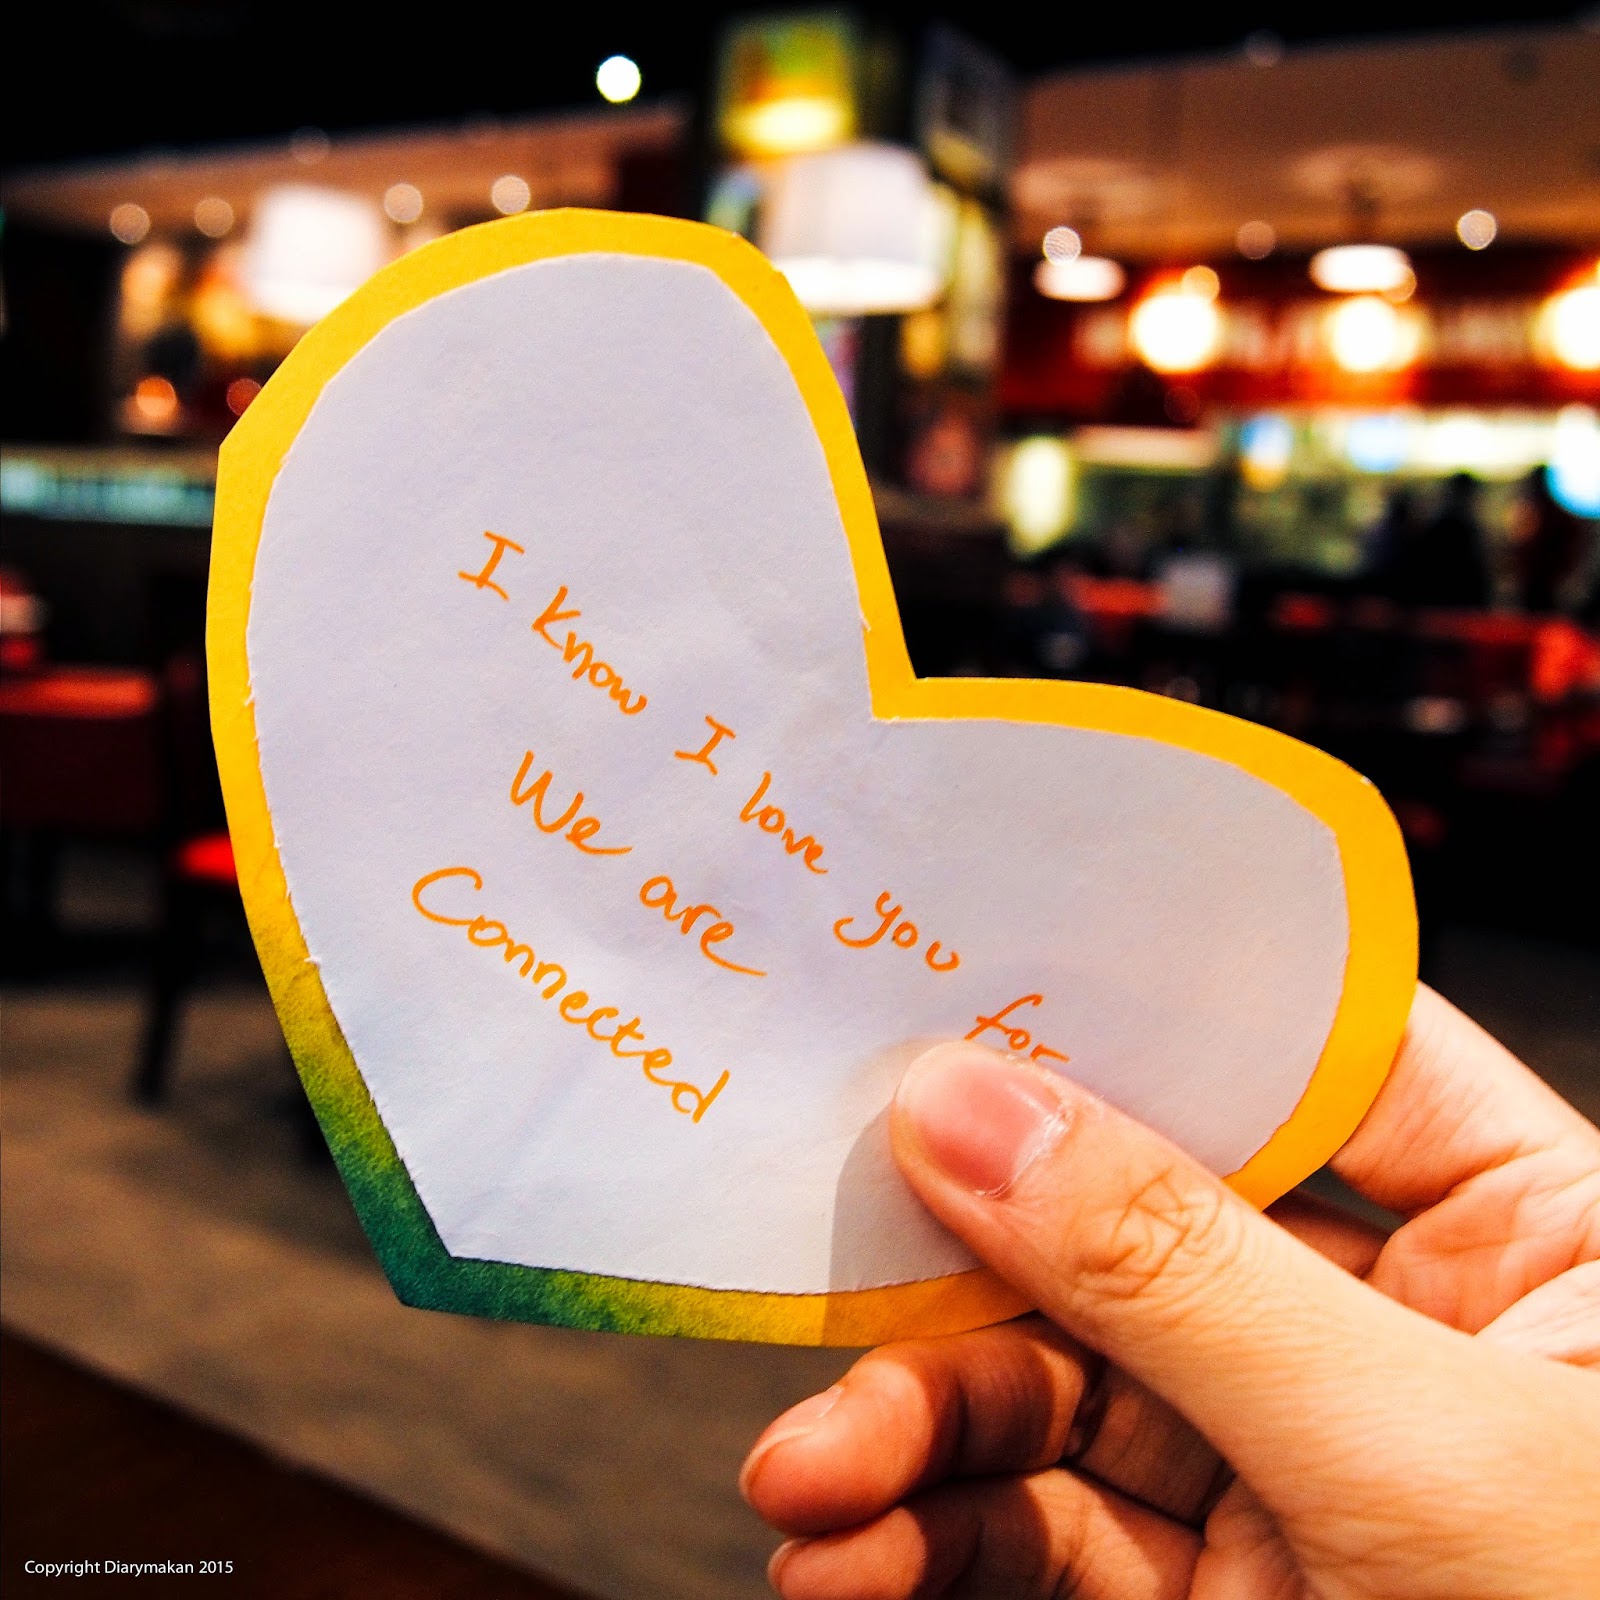 I know I love you for
We are
Connected
Copyright Diarymakan 2015